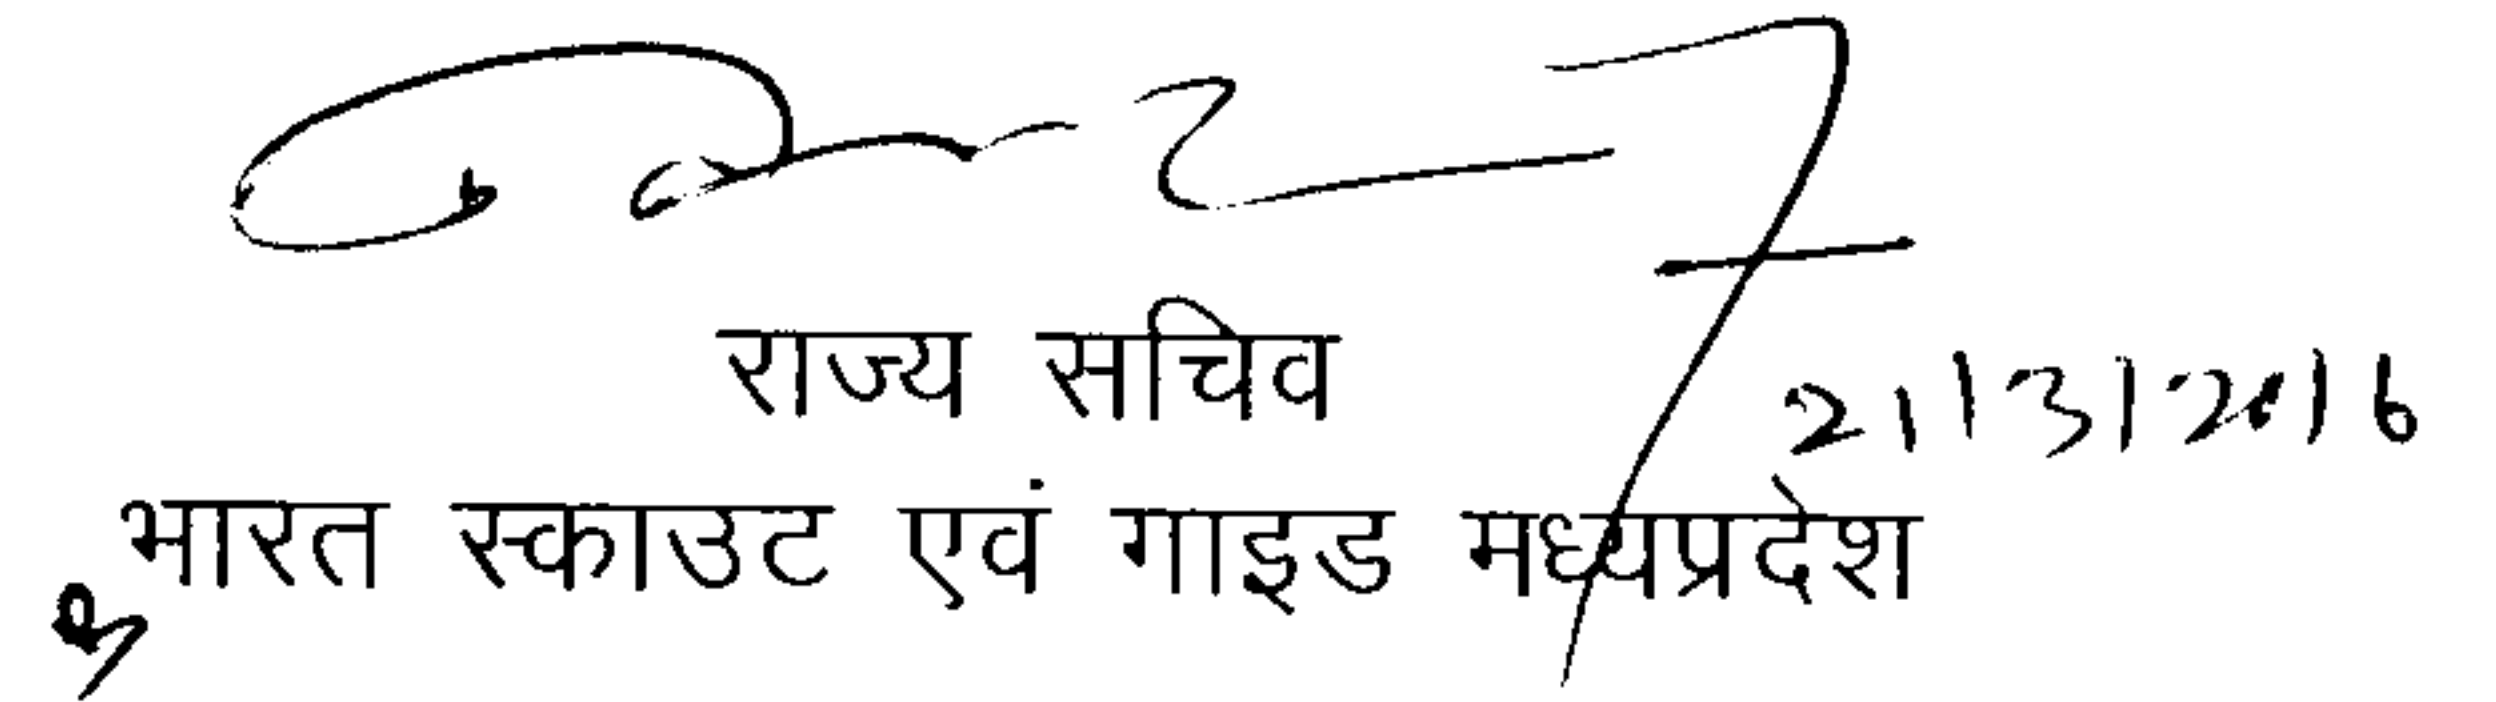 राज्य सचिव
21/3/2016
भारत स्काउट एवं गाइड मध्यप्रदेश